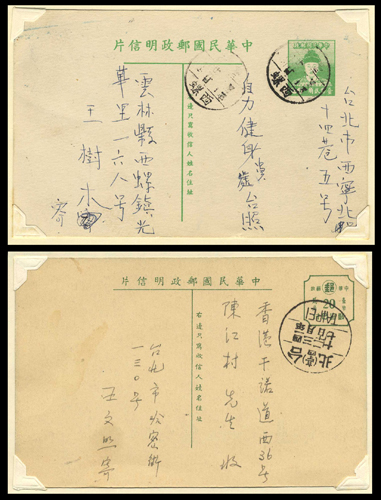 中華民國郵政明信片
西螺
西螺
台北市西寧北
十四巷五號
自力健身
台照
右邊只寫收信人姓名住址
雲林縣西螺鎮光
華里一六八号
王樹木
寄
中華民國郵政明信片
20
TAIPEI
香港干諾道西36号
陳江村先生 收
右邊只寫收信人姓名住址
台北市哈密街
一三〇号
王文照寄